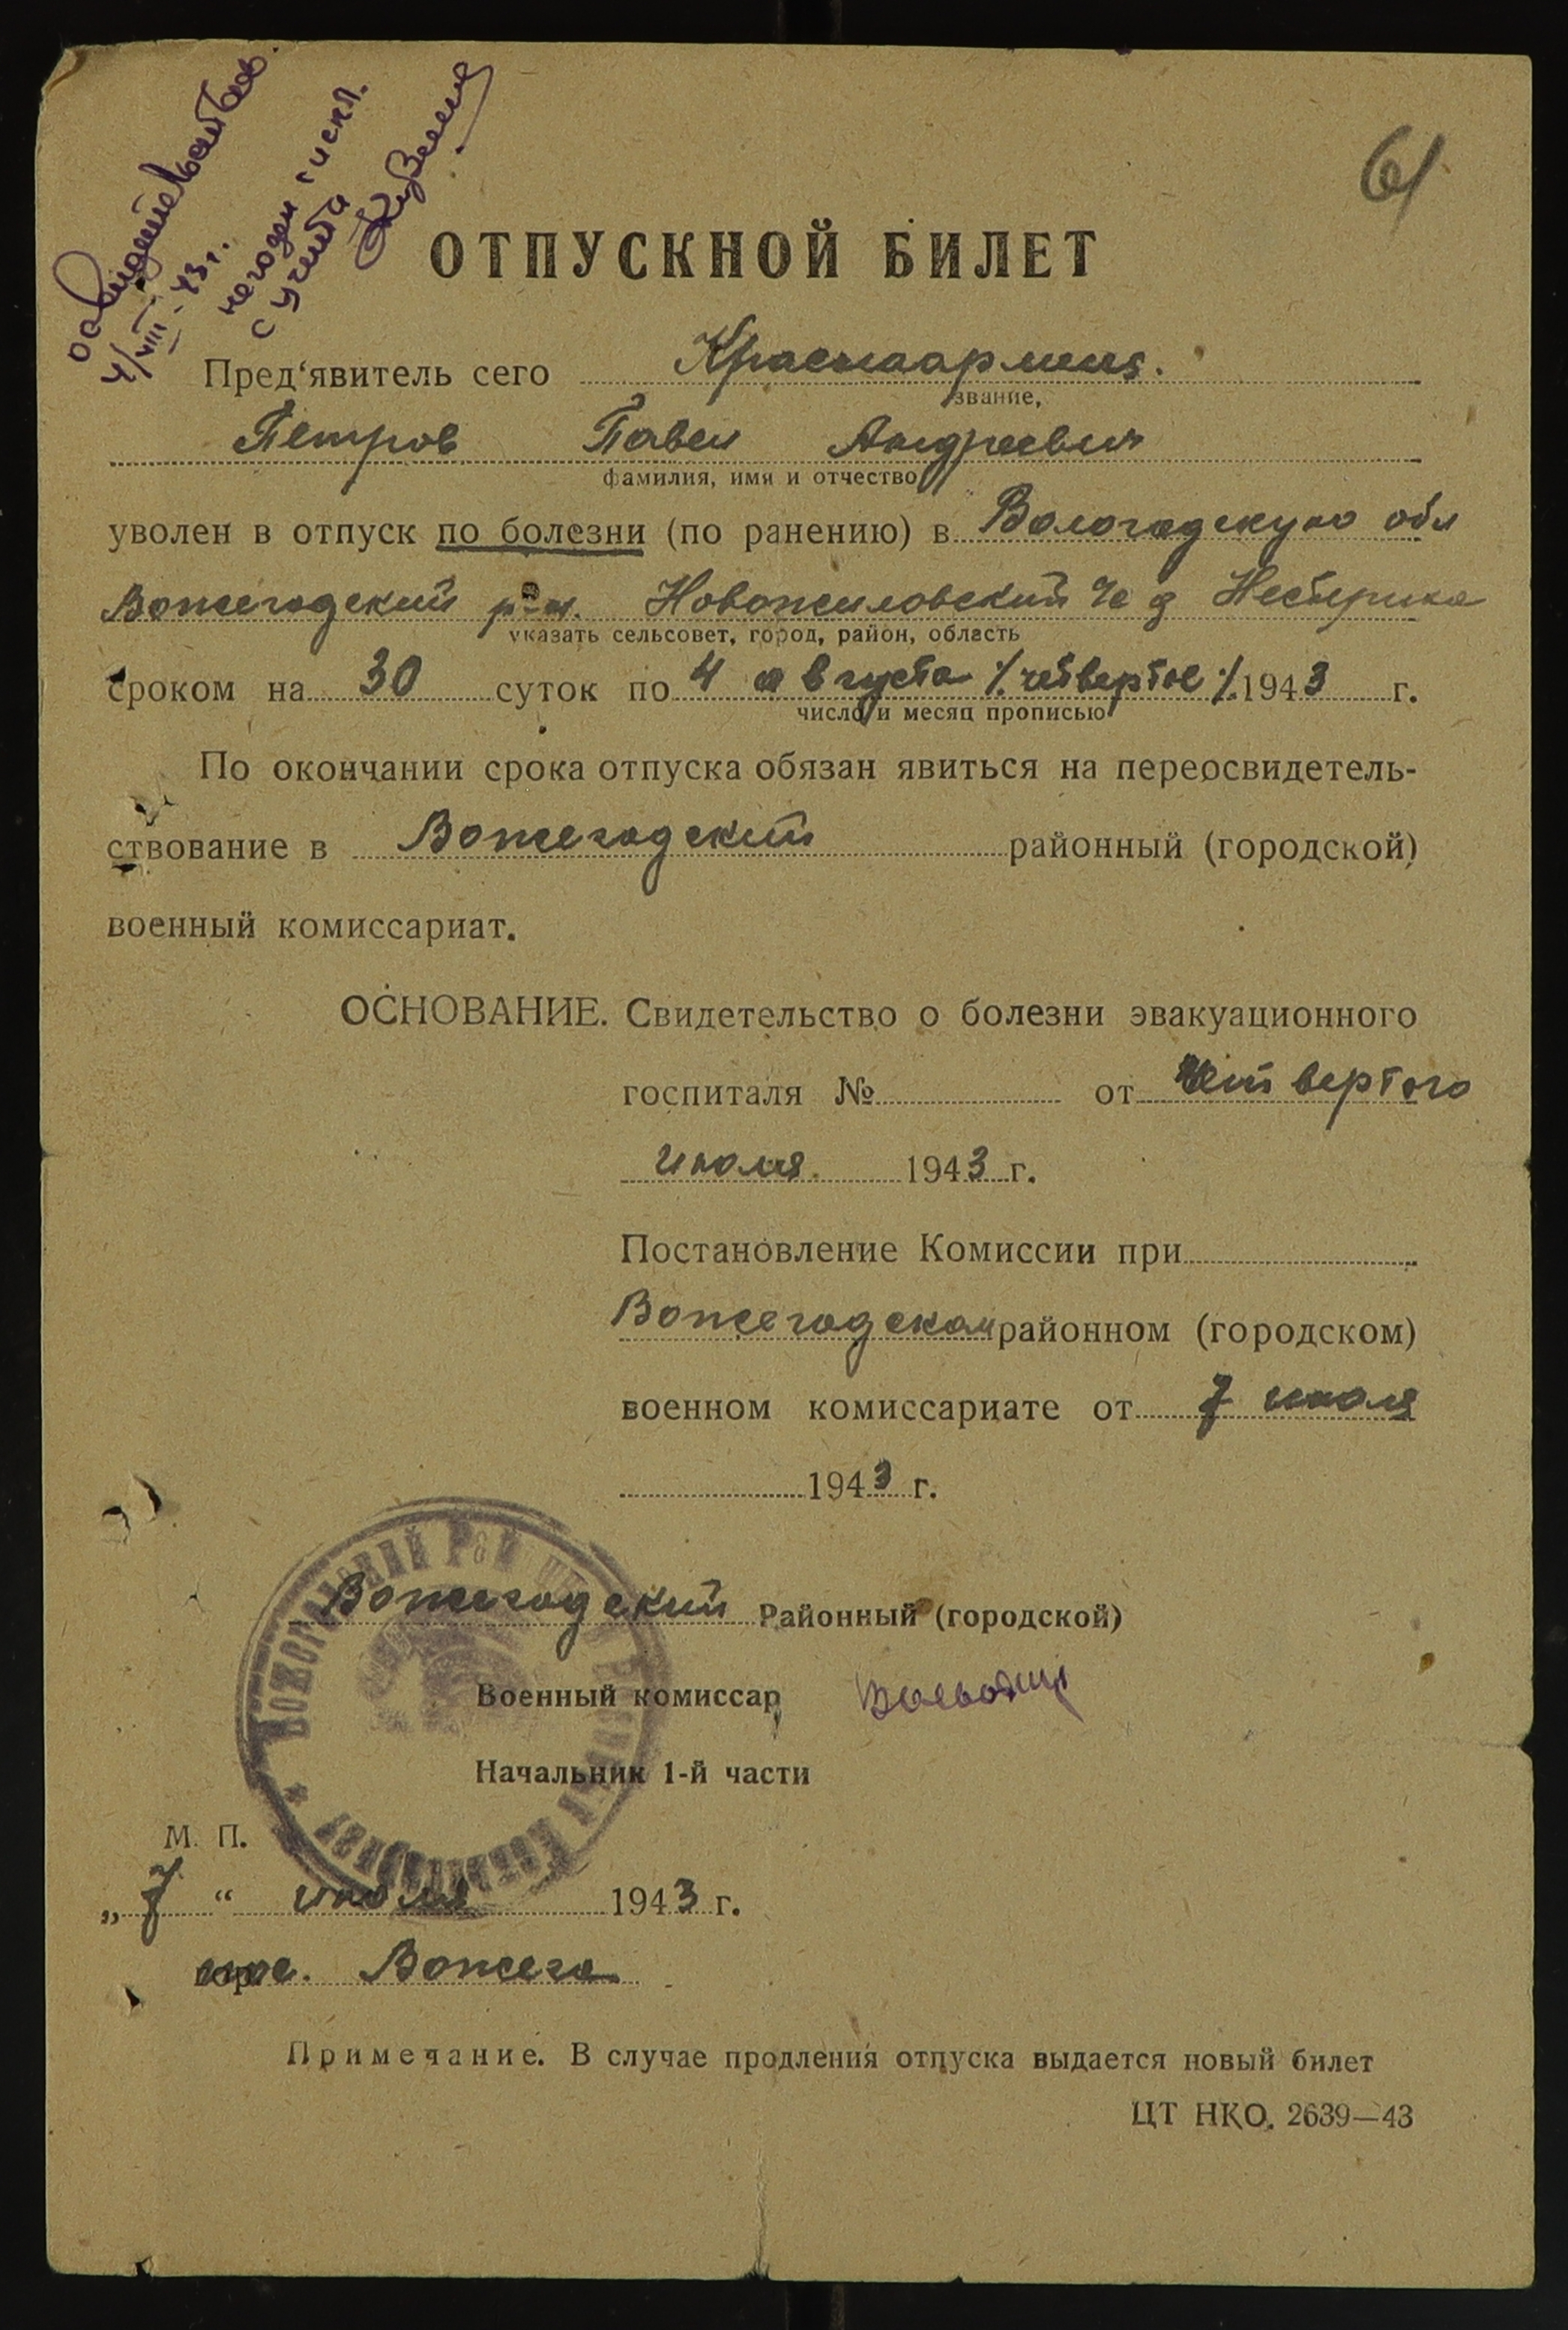 освидетельствов.
4/VIII-43 г.
негоден с искл.
с учета
61
ОТПУСКНОЙ БИЛЕТ
Пред'явитель сего Красноармеец.
звание,
Петров Павел Андреевич
фамилия, имя и отчество
уволен в отпуск по болезни (по ранению) в Вологодскую обл
Вожегодский р-н. Новожиловский с д
указать сельсовет, город, район, область
сроком на 30 суток по 4 августа /.четвертое/. 1943 г.
число и месяц прописью
По окончании срока отпуска обязан явиться на переосвидетель-
ствование в Вожегодский районный (городской)
военный комиссариат.
ОСНОВАНИЕ. Свидетельство о болезни эвакуационного
госпиталя № от четвертого
июля 1943 г.
Постановление Комиссии при
Вожегодском районном (городском)
военном комиссариате от 7 июля
1943 г.
Вожегодский Районный (городской)
Военный комиссар
Начальник 1-й части
М. П.
„7“ июля 1943 г.
пос. Вожега
Примечание. В случае продления отпуска выдается новый билет
ЦТ НКО. 2639—43